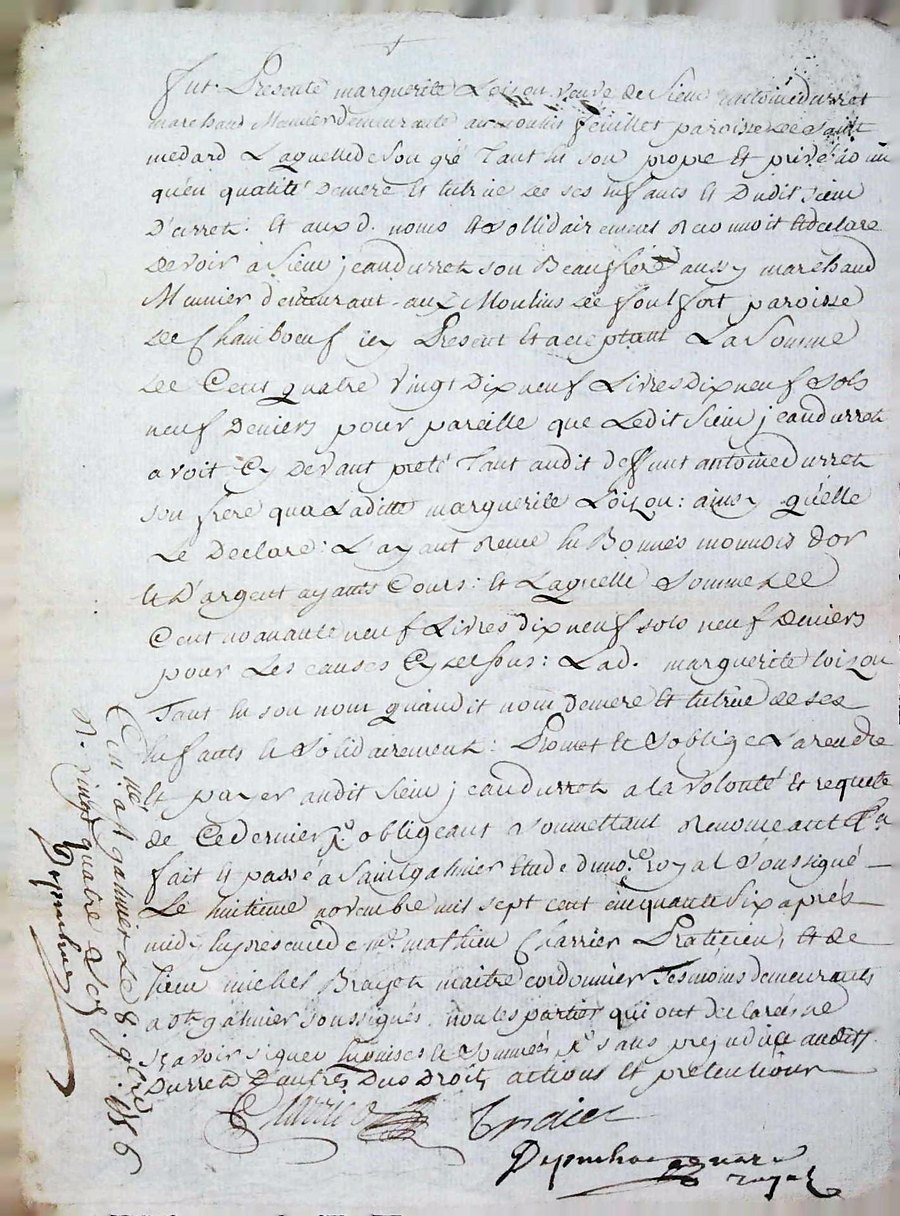 fut Presente marguerite Loizon veuve de Sieur antoine durret
marchand Meunier demeurante au moulin feuillet paroisse de Saint
medard Laquelle de son gré Tant en son propre et privé nom
qu'en qualité demere et tutrice de ses enfants et Dudit sieur
Durret : et aux d. noms et Sollidairement reconnoit et declare
devoir à Sieur jean durret son Beaufrere aussy marchand
Meunier demeurant aux Moulins de foulfort paroisse
de Chambœuf icy Present et acceptant La Somme
de Cent quatre vingt Dix neuf Livres Dix neuf Sols
neuf Deniers pour pareille que Ledit Sieur jean durret
avoit Cy Devant preté Tant audit deffunt antoine durret
son frere qua Laditte marguerite Loizon : ainsy qu'elle
Le Declare : L'ayant reçue en Bonnes monnois d'or
et D'argent ayants Cours : et Laquelle Somme de
Cent nonante neuf Livres dix neuf sols neuf deniers
pour Les causes Cy dessus : Lad. marguerite loizon
Tant en son nom qu'audit nom demere et tutrice de ses
Enfants et Solidairement : Promet et s'oblige La rendre
et payer audit Sieur jean durret a la volonté et requete
de Ce dernier obligeant soumettant renonceant &a
fait et passé à Saint galmier Etude du no.re royal Soussigné
Le huitieme novembre mil sept cent cinquante Six après
midy En presence de m.e mathieu Charrier Praticien, et de
sieur michel Brayet maitre cordonnier Tesmoins demeurants
a St galmier soussignés. non les parties qui ont declaré ne
sçavoir signer Enquises et Sommées sans prejudice audit
Durret d'autres Dus Droits actions et pretentions
Charrier
notaire
royal
Con.lé à St galmier Le 8. 9bre 1756
R. vingt quatre sols